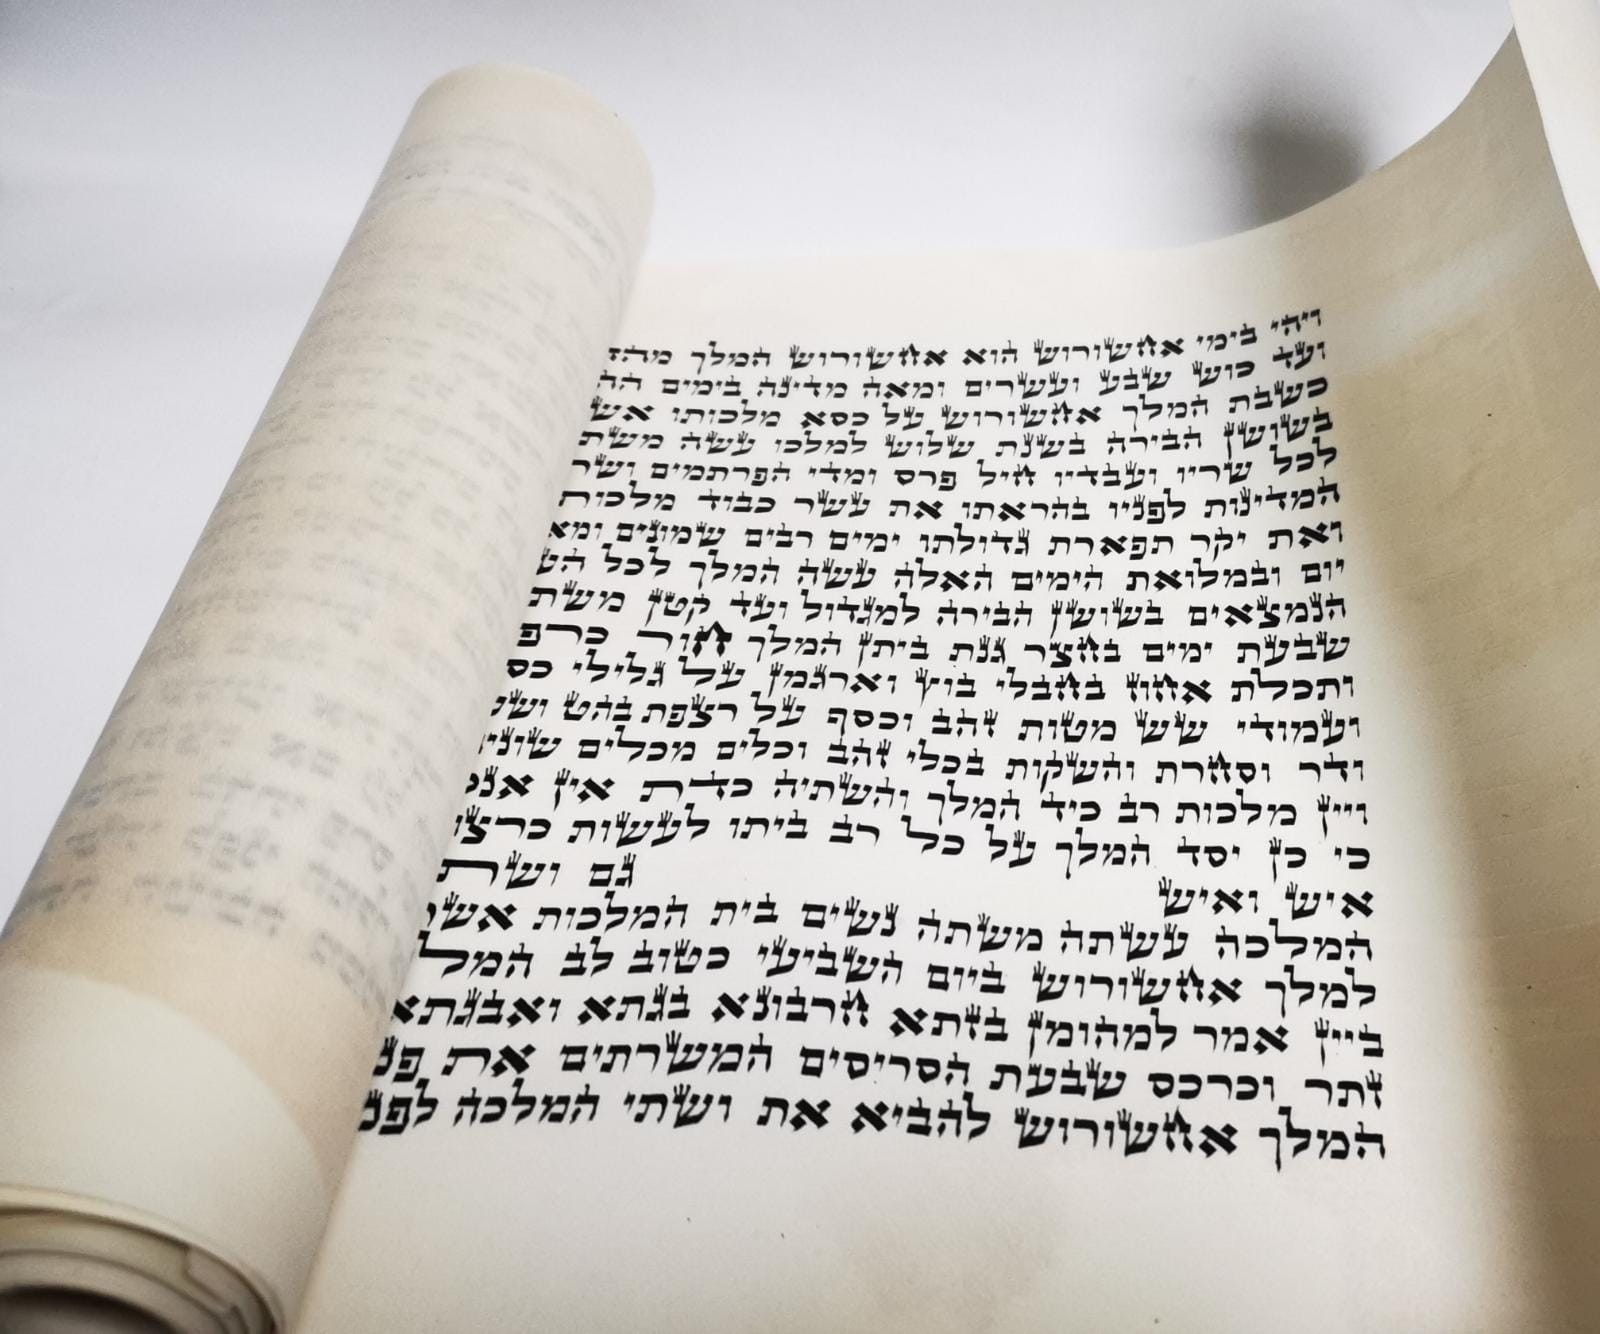 ויהי בימי אחשורוש הוא אחשורוש המלך
ועד כוש שבע ועשרים ומאה מדינה בימים
כשבת המלך אחשורוש על כסא מלכותו
בשושן הבירה בשנת שלוש למלכו עשה
לכל שריו ועבדיו חיל פרס ומדי הפרתמים
המדינות לפניו בהראתו את עשר כבוד
ואת יקר תפארת גדולתו ימים רבים שמונים
יום ובמלואת הימים האלה עשה המלך לכל
הנמצאים בשושן הבירה למגדול ועד קטן
שבעת ימים בחצר גנת ביתן המלך חור
ותכלת אחוז בחבלי בוץ וארגמן על גלילי
ועמודי שש מטות זהב וכסף על רצפת בהט
ודר וסחרת והשקות בכלי זהב וכלים מכלים
ויין מלכות רב כיד המלך והשתיה כדת אין
כי כן יסד המלך על כל רב ביתו לעשות
איש ואיש גם
המלכה עשתה משתה נשים בית המלכות אשר
למלך אחשורוש ביום השביעי כטוב לב
ביין אמר למהומן בזתא חרבונא בגתא ואבגתא
זתר וכרכס שבעת הסריסים המשרתים את
המלך אחשורוש להביא את ושתי המלכה